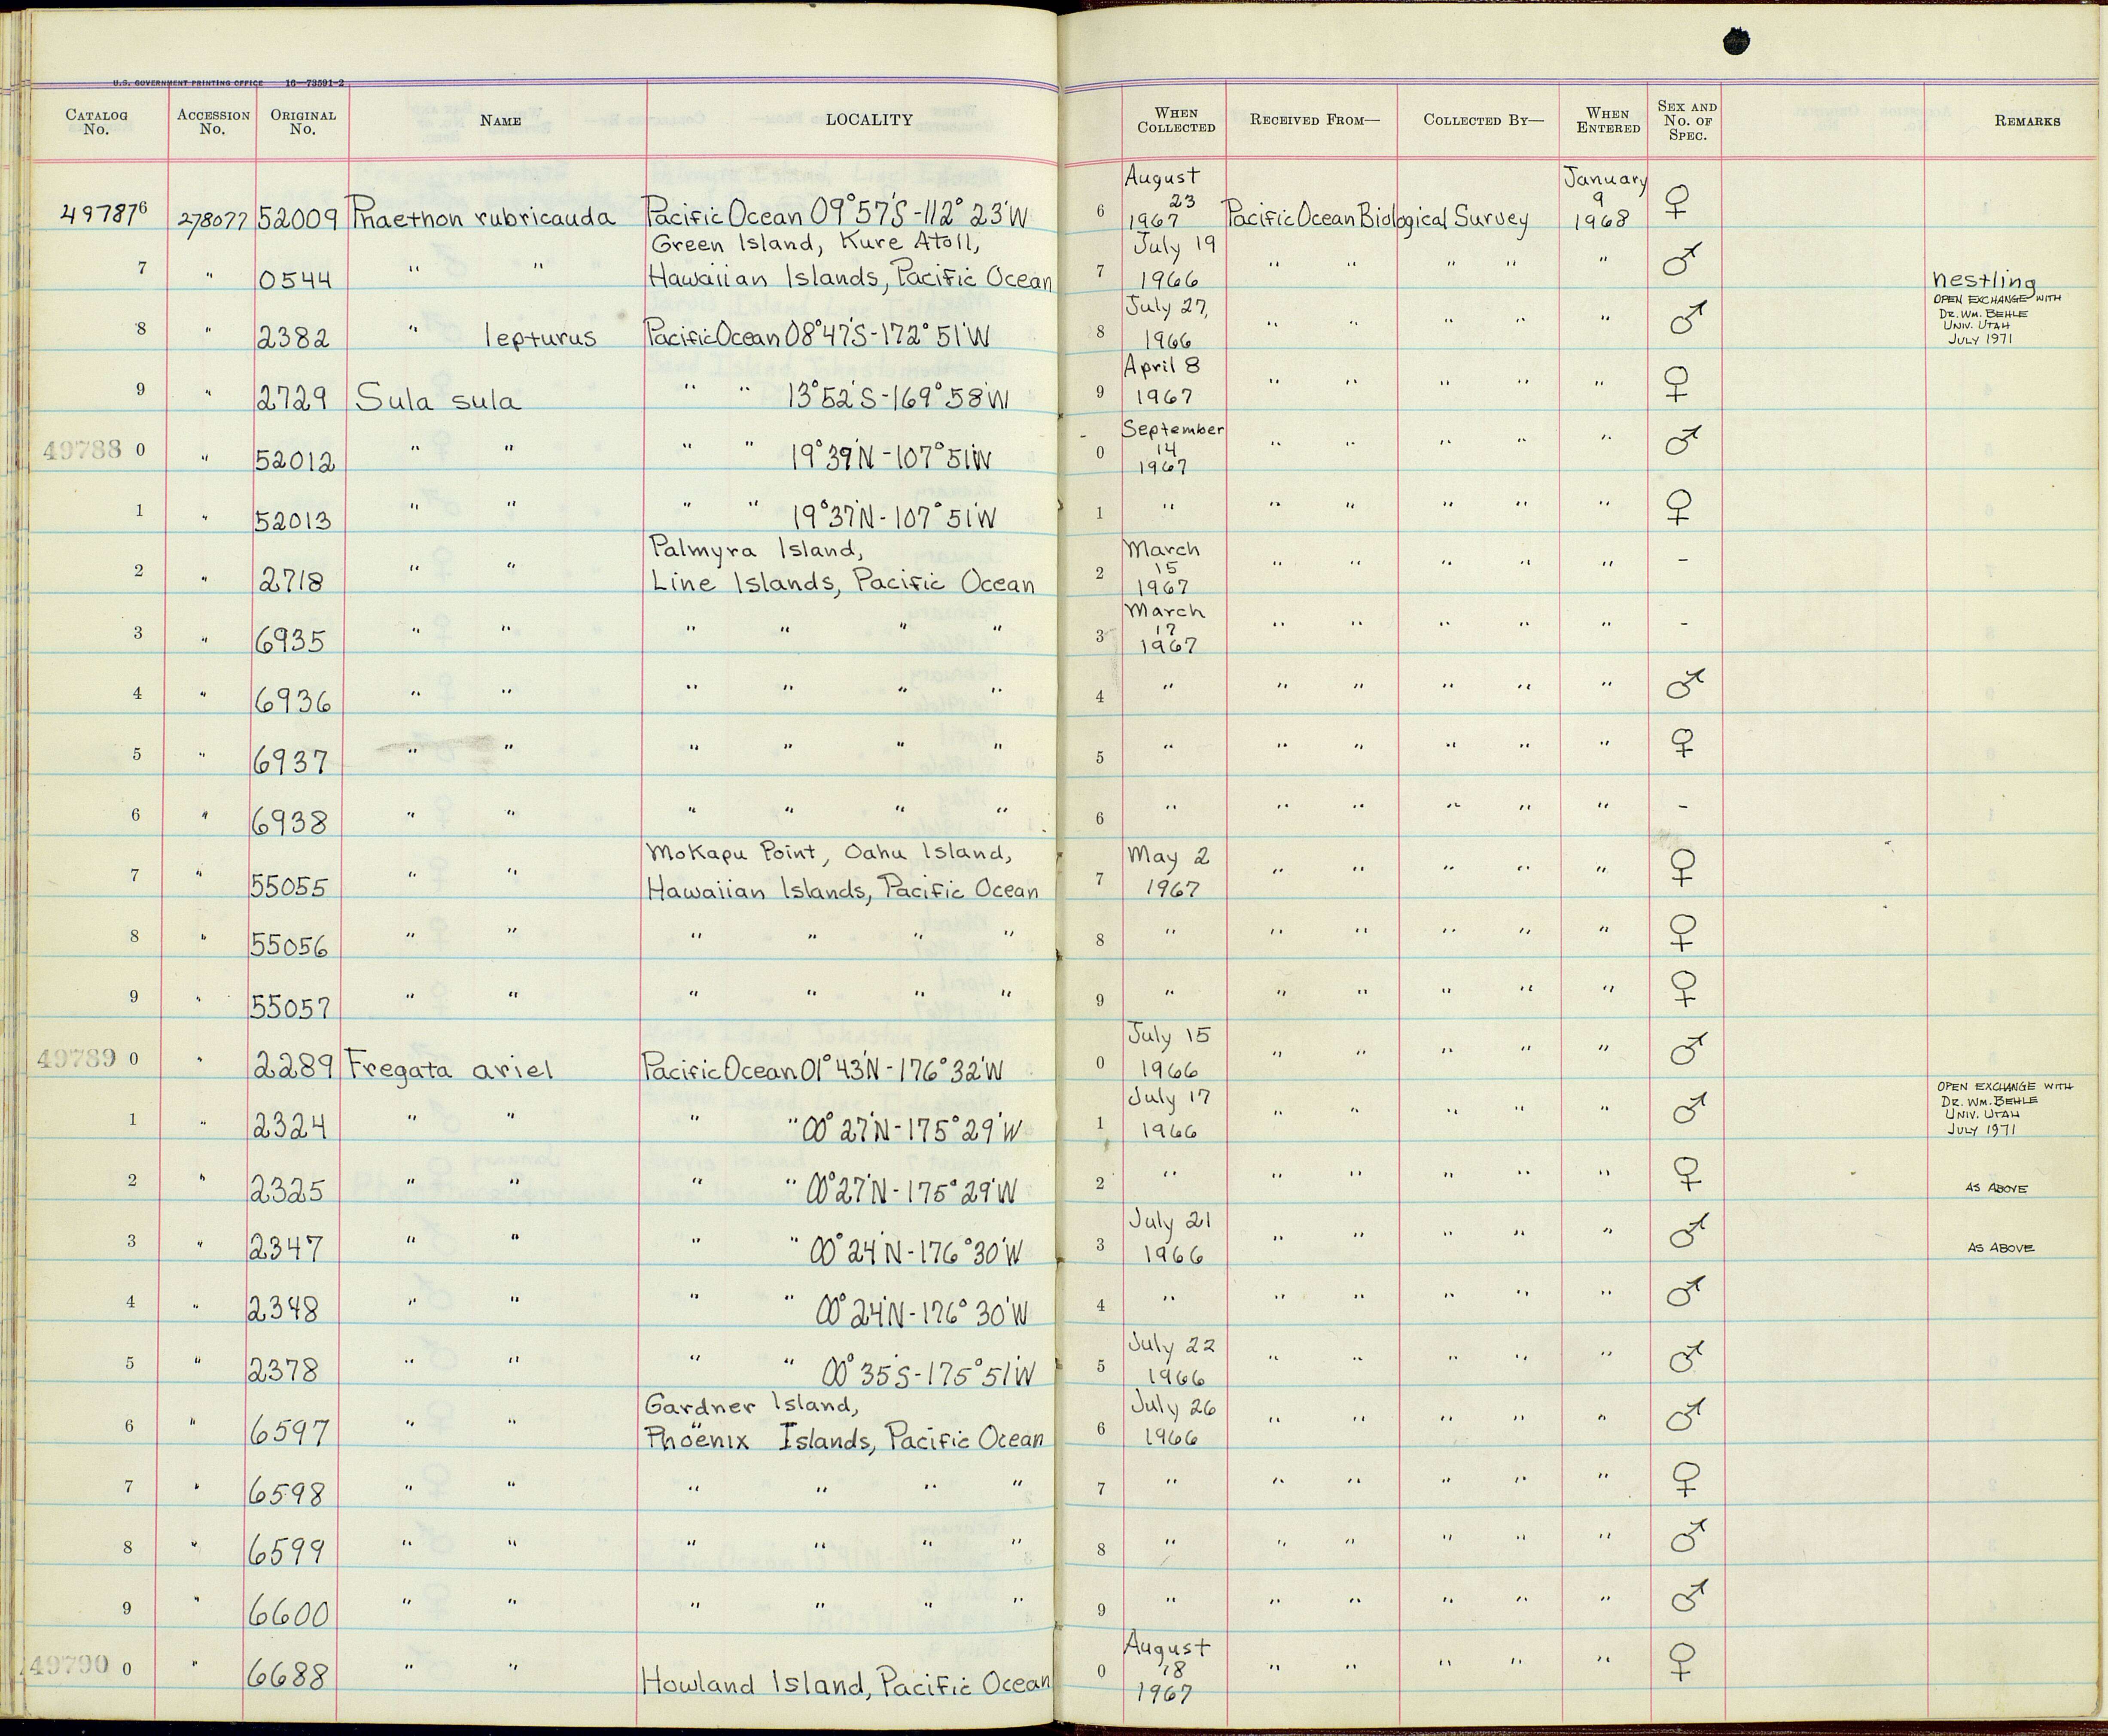 U.S. GOVERNMENT PRINTING OFFICE 16—73591-2
CATALOG No. ACCESSION No. ORIGINAL No. NAME LOCALITY WHEN COLLECTED RECEIVED FROM— COLLECTED BY— WHEN ENTERED SEX AND No. OF SPEC. REMARKS
497876 278077 52009 Phaethon rubricauda Pacific Ocean 09°57'S-112°23'W 6 August 23 1967 Pacific Ocean Biological Survey January 9 1968 ♀
7 " 0544 " " Green Island, Kure Atoll, Hawaiian Islands, Pacific Ocean 7 July 19 1966 " " " " " ♂ nestling
8 " 2382 " lepturus Pacific Ocean 08°47'S-172°51'W 8 July 27, 1966 " " " " " ♂ OPEN EXCHANGE WITH DR. WM. BEHLE UNIV. UTAH JULY 1971
9 " 2729 Sula sula " " 13°52'S-169°58'W 9 April 8 1967 " " " " " ♀
49788 0 " 52012 " " " " 19°39'N-107°51'W 0 September 14 1967 " " " " " ♂
1 " 52013 " " " " 19°37'N-107°51'W 1 " " " " " " ♀
2 " 2718 " " Palmyra Island, Line Islands, Pacific Ocean 2 March 15 1967 " " " " " -
3 " 6935 " " " " " " 3 March 17 1967 " " " " " -
4 " 6936 " " " " " " 4 " " " " " " ♂
5 " 6937 " " " " " " 5 " " " " " " ♀
6 " 6938 " " " " " " 6 " " " " " " -
7 " 55055 " " Mokapu Point, Oahu Island, Hawaiian Islands, Pacific Ocean 7 May 2 1967 " " " " " ♀
8 " 55056 " " " " " " 8 " " " " " " ♀
9 " 55057 " " " " " " 9 " " " " " " ♀
49789 0 " 2289 Fregata ariel Pacific Ocean 01°43'N-176°32'W 0 July 15 1966 " " " " " ♂
1 " 2324 " " " " 00°27'N-175°29'W 1 July 17 1966 " " " " " ♂ OPEN EXCHANGE WITH DR. WM. BEHLE UNIV. UTAH JULY 1971
2 " 2325 " " " " 00°27'N-175°29'W 2 " " " " " " ♀ AS ABOVE
3 " 2347 " " " " 00°24'N-176°30'W 3 July 21 1966 " " " " " ♂ AS ABOVE
4 " 2348 " " " " 00°24'N-176°30'W 4 " " " " " " ♂
5 " 2378 " " " " 00°35'S-175°51'W 5 July 22 1966 " " " " " ♂
6 " 6597 " " Gardner Island, Phoenix Islands, Pacific Ocean 6 July 26 1966 " " " " " ♂
7 " 6598 " " " " " " 7 " " " " " " ♀
8 " 6599 " " " " " " 8 " " " " " " ♂
9 " 6600 " " " " " " 9 " " " " " " ♂
49790 0 " 6688 " " Howland Island, Pacific Ocean 0 August 18 1967 " " " " " ♀